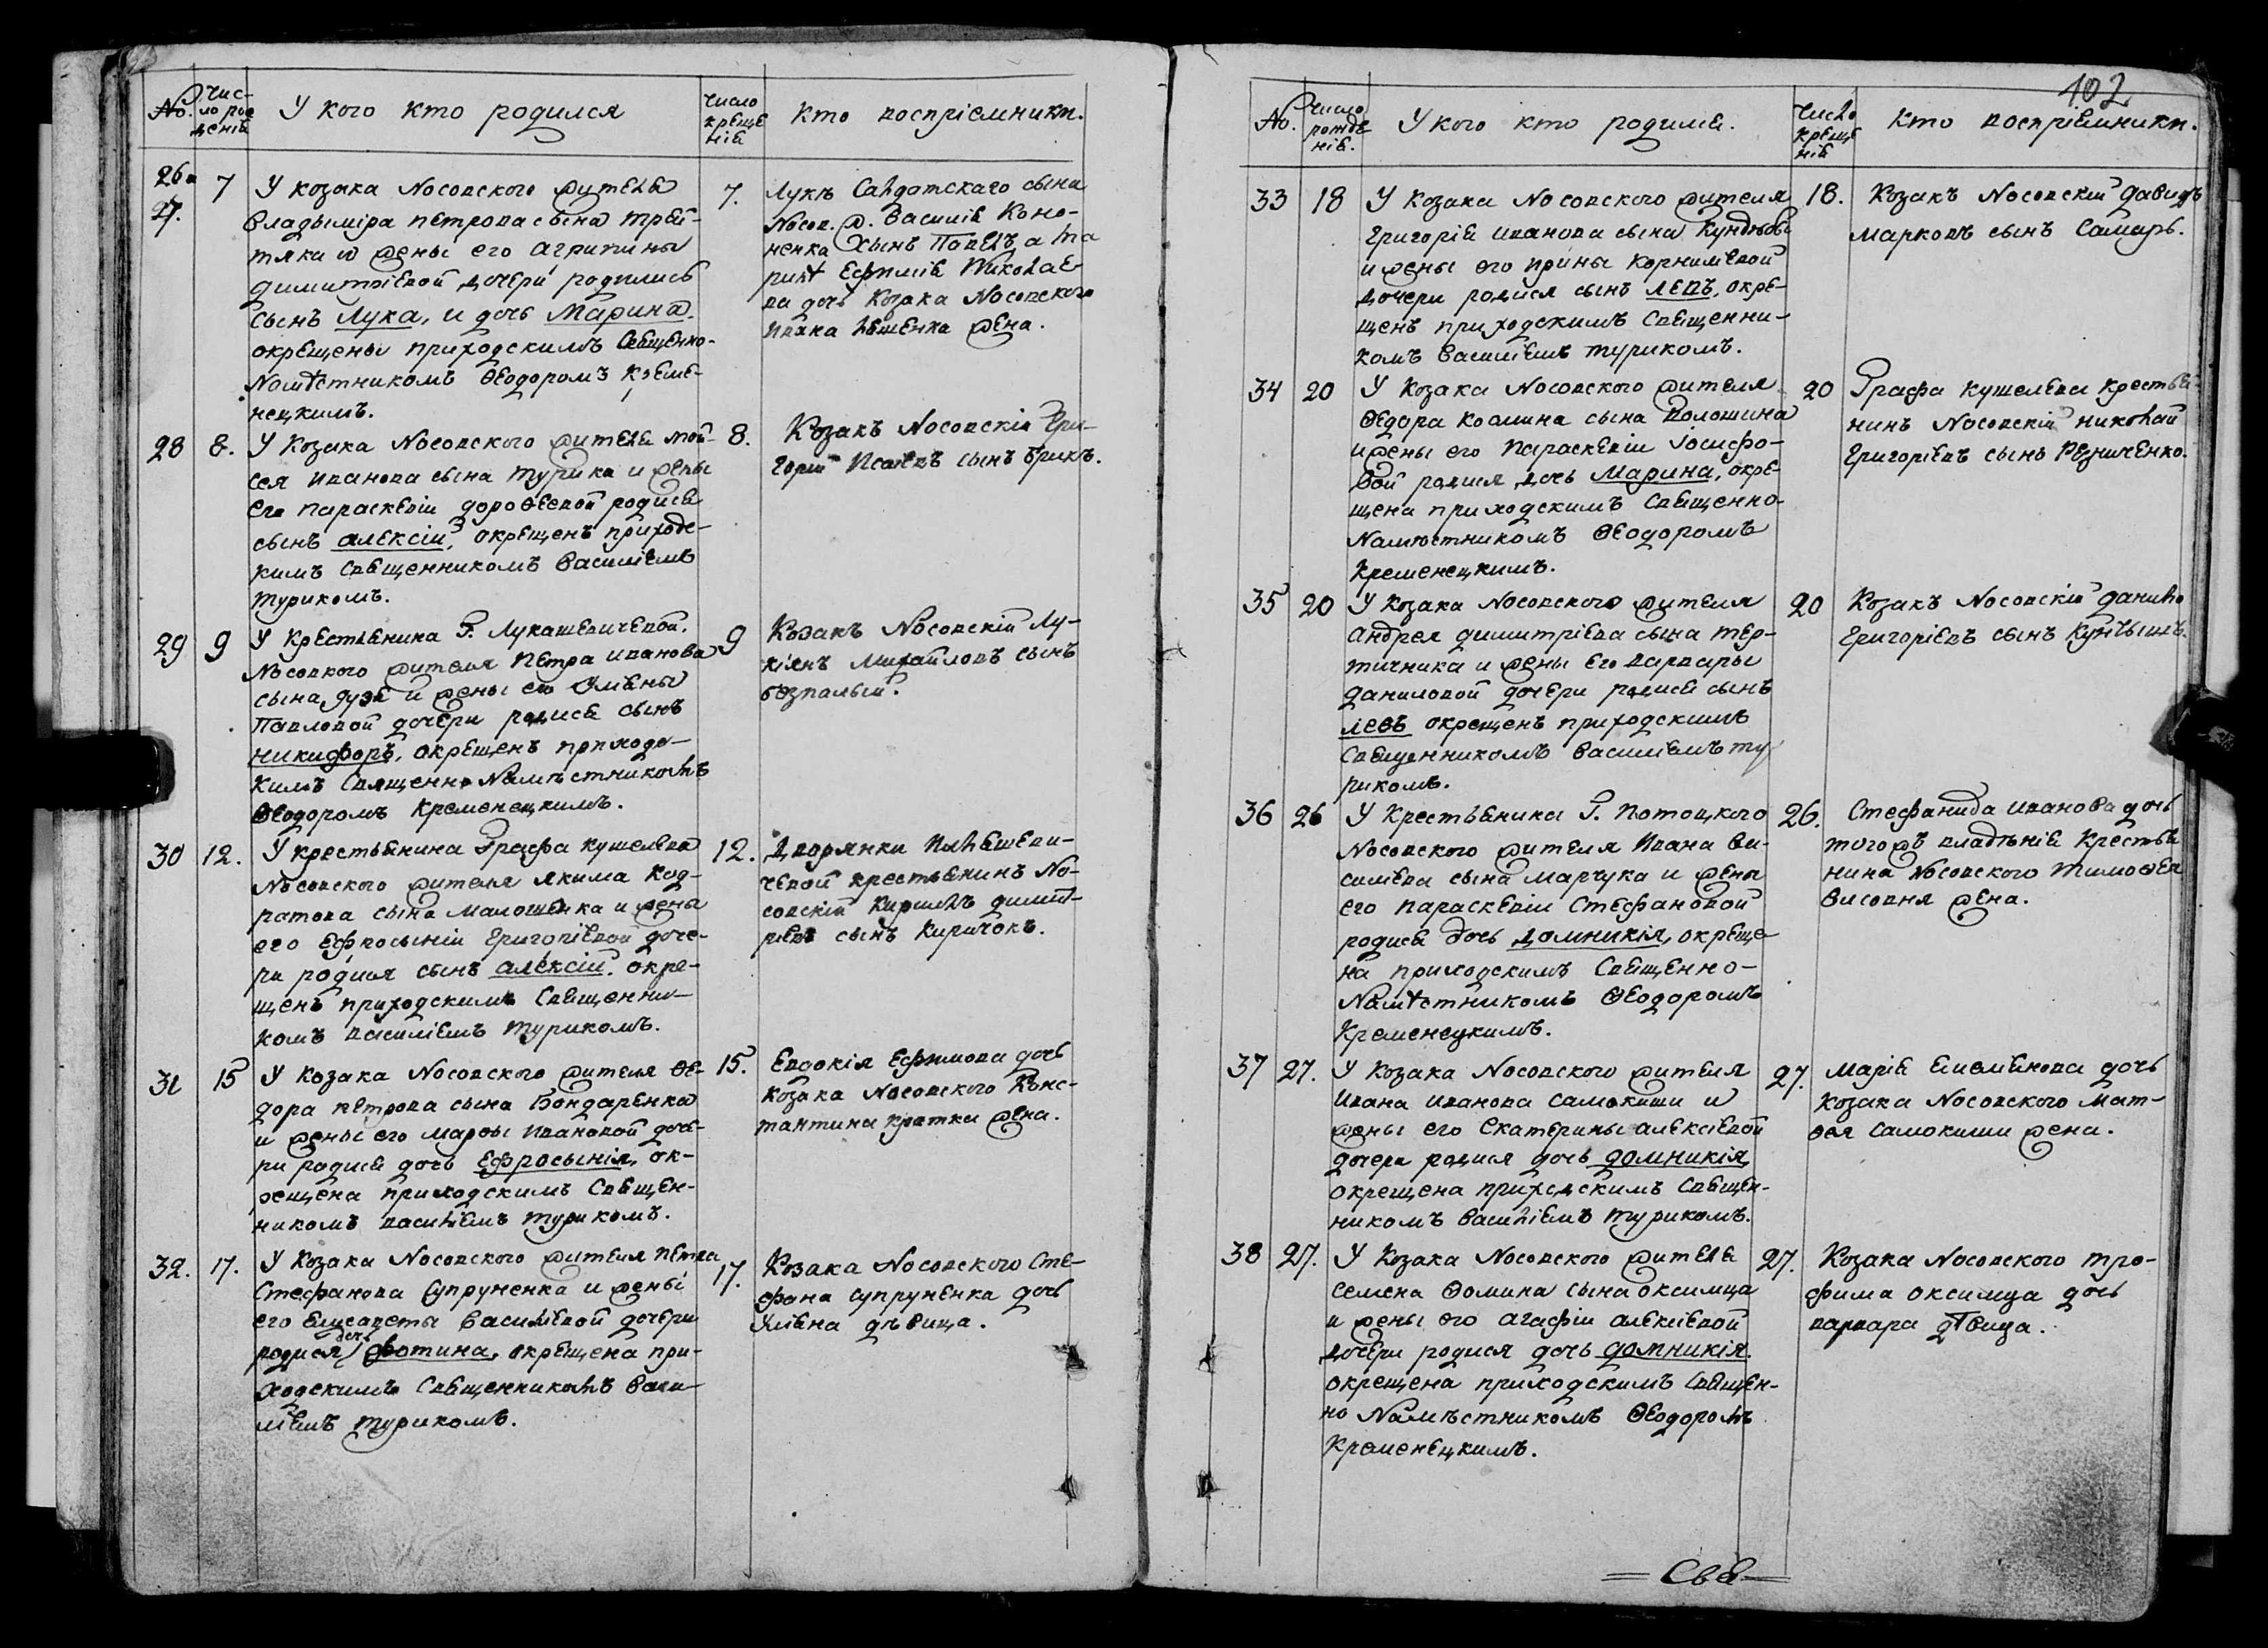 No. Чис-
ло рож
деніѧ
У кого кто родился
Число
креще
ніѧ
кто воспріємники.
26 и
27.
7
У козака Носовского жителѧ
Владыміра петрова сына трей-
тяка и жены его Агрипины
димитрієвой дочери родились
сынъ Лука, и дочь Марина.
окрещены приходскимъ Свѧщенно-
Намѣстникомъ Ѳеодоромъ Креме-
нецкимъ.
7.
Лукѣ Салдатскаго сына
Носов. ж. Василіѧ Коно-
ненка сынъ Павелъ, а Ма
ринѣ Ефиміѧ Николає
ва дочь Козака Носовского
Ивана лѣшенка жена.
28
8.
У Козака Носовского жителѧ мой-
сея Иванова сына Турика и жены
его параскевіи дороѳеевой родисѧ
сынъ алексій, окрещенъ приходс-
кимъ свѧщенникомъ Василіемъ
Турикомъ.
8.
Козакъ Носовскій Гри-
горій Исаевъ сынъ Брикъ.
29
9
У Крестьѧнина Г. Лукашевичевой.
Носовкого жителя Петра Иванова
сына дузѧ и жены его Улѧны
Павловой дочери родисѧ сынъ
никифоръ, окрещенъ приходс-
кимъ Священно Намѣстникомъ
Ѳеодоромъ Кременецкимъ.
9
Козакъ Носовскій Лу-
кіянъ Михайловъ сынъ
безпалый.
30
12.
У крестьѧнина Графа кушелева
Носовского жителя якима код-
ратова сына малошенка и жены
его Ефросыніи Григоріевой доче-
ри родися сынъ алексій. окре-
щенъ приходскимъ Свѧщенни-
комъ василіемъ туриком.
12.
Дворянки Илѧшеви-
чевой крестьѧнинъ Но-
совскій Кирилъ димит-
ріевъ сынъ Киричокъ.
31
15
У Козака Носовского жителя Ѳе-
дора петрова сына Бондаренка
и жены его Марѳы Ивановой доче-
ри родисѧ дочь Ефросынія, ок-
рещена приходскимъ Свѧщен-
никомъ василіемъ туриком.
15.
Евдокія Ефимова дочь
козака Носовского Конс-
тантина кратка жена.
32.
17.
У Козака Носовского жителя петра
Стефанова Супруненка и жены
его Елисаветы Василіевой дочери
дочь
родися Фотина, окрещена при-
ходскимъ Свѧщенникомъ Васи-
ліемъ туриком.
17.
Козака Носовского Сте-
фана Супруненка дочь
Улѧна дѣвица.
102
No.
Число
рожде
ніѧ.
У кого кто родился.
Число
креще
ніѧ
Кто воспріємники.
33
18
У Козака Носовского жителя
Григоріѧ иванова сына
и жены его Ирины Корниліевой
дочери родися сынъ левъ, окре-
щенъ приходскимъ Свѧщенни-
комъ Василіемъ туриком.
18.
Козакъ Носовскій давидъ
марковъ сынъ Самарь.
34
20
У Козака Носовского жителя
Ѳедора козмина сына Волошина
и жены его Параскевіи Іосифо-
вой родися дочь Марина, окре-
щена приходскимъ Свѧщенно-
Намѣстникомъ Ѳеодоромъ
Кременецкимъ.
20
Графа кушелева крестьѧ-
нинъ Носовскій николай
Григоріевъ сынъ Резниченко.
35
20
У Козака Носовского жителя
Андрея димитріева сына тер-
тичника и жены его варвары
даниловой дочери родисѧ сынъ
левъ окрещенъ приходскимъ
Свѧщенникомъ Василіемъ ту
риком.
20
Козакъ Носовскій данило
Григоріевъ сынъ
36
26
У Крестьѧнина Г. Потоцкого
Носовского жителя Ивана Ва-
силіева сына марчука и жены
его параскевіи Стефановой
родисѧ дочь домникія, окреще
на приходскимъ Свѧщенно-
Намѣстникомъ Ѳеодоромъ
Кременецкимъ.
26.
Стефанида иванова дочь
тогожъ владѣніѧ Крестьѧ
нина Носовского тимоѳея
висовня жена.
37
27.
У Козака Носовского жителя
Ивана Иванова самокиши и
жены его Екатерины алексіевой
дочери родися дочь домникія,
окрещена приходскимъ Свѧщен-
никомъ Василіемъ туриком.
27.
Маріѧ Емелѧнова дочь
козака Носовского Мат-
ѳея Самокиши жена.
38
27.
У Козака Носовского жителѧ
Семена Ѳомина сына Оксимца
и жены его агафіи алексіевой
дочери родися дочь домникія.
окрещена приходскимъ Свѧщен-
но Намѣстникомъ Ѳеодоромъ
Кременецкимъ.
27.
Козака Носовского тро-
фима оксимца дочь
варвара дѣвица.
= Свѧ =